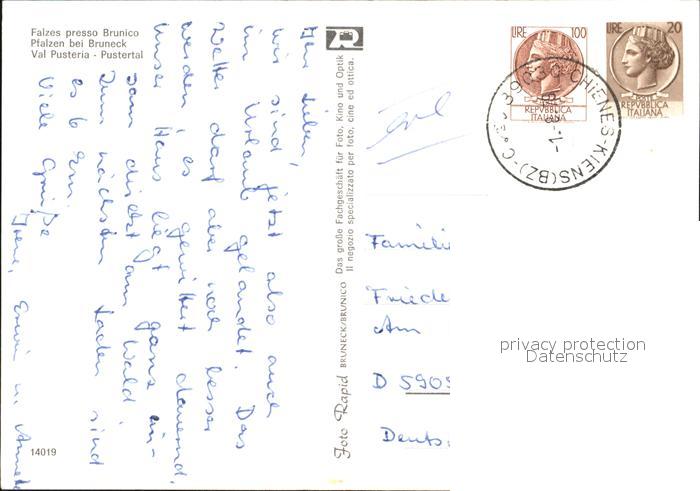 Falzes presso Brunico
Pfalzen bei Bruneck
Val Pusteria - Pustertal
Ihr Lieben,
wir sind jetzt also auch
im Urlaub gelandet. Das
Wetter darf aber noch besser
werden, es gewittert dauernd.
Unser Haus liegt ganz ein-
sam direkt am Wald.
Zum nächsten Laden sind
es 6 km.
Viele Grüße
Irene, Erwin u.
14019
Foto Rapid BRUNECK/BRUNICO
Das große Fachgeschäft für Foto, Kino und Optik
Il negozio specializzato per foto, cine ed ottica.
LIRE 100
REPVBBLICA
ITALIANA
LIRE 20
REPVBBLICA
ITALIANA
CHIENES-KIENS(BZ)-C
Famili
Friede
Am
D 5909
Deuts
privacy protection
Datenschutz